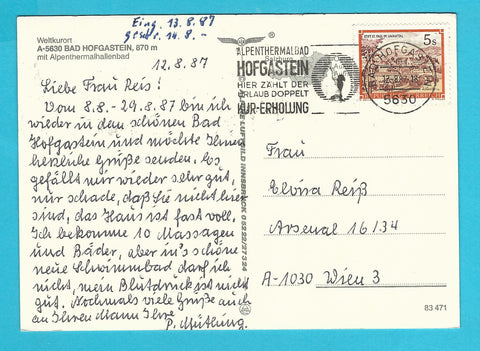 Eing. 13.8.87
14.8.-
Weltkurort
A-5630 BAD HOFGASTEIN, 870 m
mit Alpenthermalhallenbad
12.8.87
Liebe Frau Reis!
Vom 8.8.-29.8.87 bin ich
wieder in dem schönen Bad
Hofgastein und möchte Ihnen
herzliche Grüße senden. Es
gefällt mir wieder sehr gut,
nur schade, daß Sie nicht hier
sind, das Haus ist fast voll.
Ich bekomme 10 Massagen
und Bäder, aber in's schöne
neue Schwimmbad darf ich
nicht, mein Blutdruck ist nicht
gut. Nochmals viele Grüße auch
an Ihren Mann Ihre
P. Müthing.
LUFTBILD INNSBRUCK 05222/27324
ALPENTHERMALBAD
Salzburg
HOFGASTEIN
HIER ZÄHLT DER
URLAUB DOPPELT
KUR-ERHOLUNG
STIFT ST. PAUL IM LAVANTTAL
5s
HOFGASTEIN
5630
Frau
Elvira Reiß
Arsenal 16/34
A-1030 Wien 3
83 471